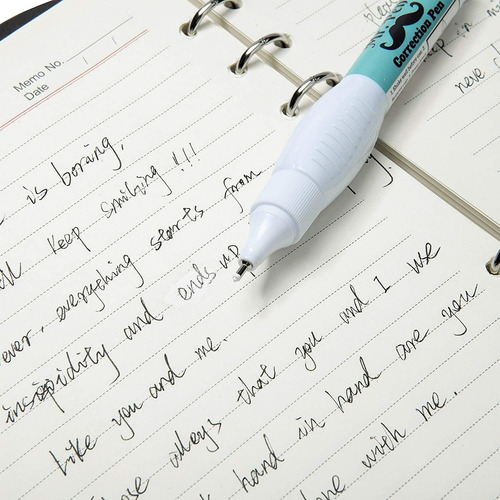 Memo No.
Date
is boring,
keep smiling !!!
ever, everything starts from
insipidity and ends up
like you and me.
always that you and I we
hand in hand are you
with me.
Correction Pen
please
keep in
neve